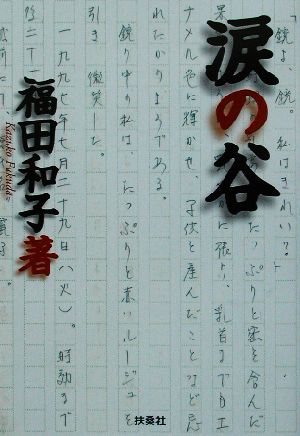 涙の谷
福田和子著
Kazuko Fukuda
「鏡よ、鏡。
たっぷりと蜜を含んだ
に張り、乳首までもエ
ナメル色に輝かせ、子供を産んだことなど忘
れたかのようである。
鏡の中の私は、たっぷりと赤いルージュを
引き、微笑した。
一九九七年七月二十九日(火)。時効まで
扶桑社